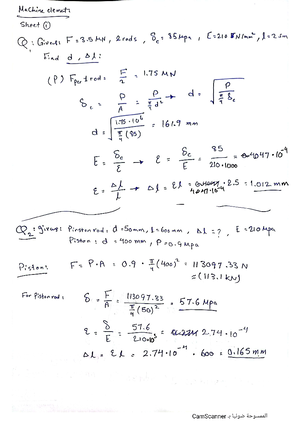 Machine elements
Sheet ①
Q: Given: F = 3.5MN, 2 rods, δc = 85Mpa, E=210 KN/mm², l=2.5m
Find d, Δl:
(P) F per 1 rod = F/2 = 1.75 MN
δc = P/A = P/(π/4 d²) → d = √(P/(π/4 δc))
d = √(1.75·10⁶/(π/4 (85))) = 161.9 mm
E = δc/ε → ε = δc/E = 85/(210·1000) = 4.047·10⁻⁴
ε = Δl/l → Δl = εl = 4.047·10⁻⁴ · 2.5 = 1.012 mm
Q2: given: Piston rod: d=50mm, l=600mm, Δl = ?, E=210Mpa
Piston: d = 400mm, P=0.9Mpa
Piston: F= P·A = 0.9 · π/4 (400)² = 113097.33 N
= (113.1 KN)
For Piston rod: δ = F/A = 113097.33/(π/4 (50)²) = 57.6 Mpa
ε = δ/E = 57.6/(210·10³) = 2.74·10⁻⁴
Δl = εl = 2.74·10⁻⁴ · 600 = 0.165mm
الممسوحة ضوئيا بـ CamScanner